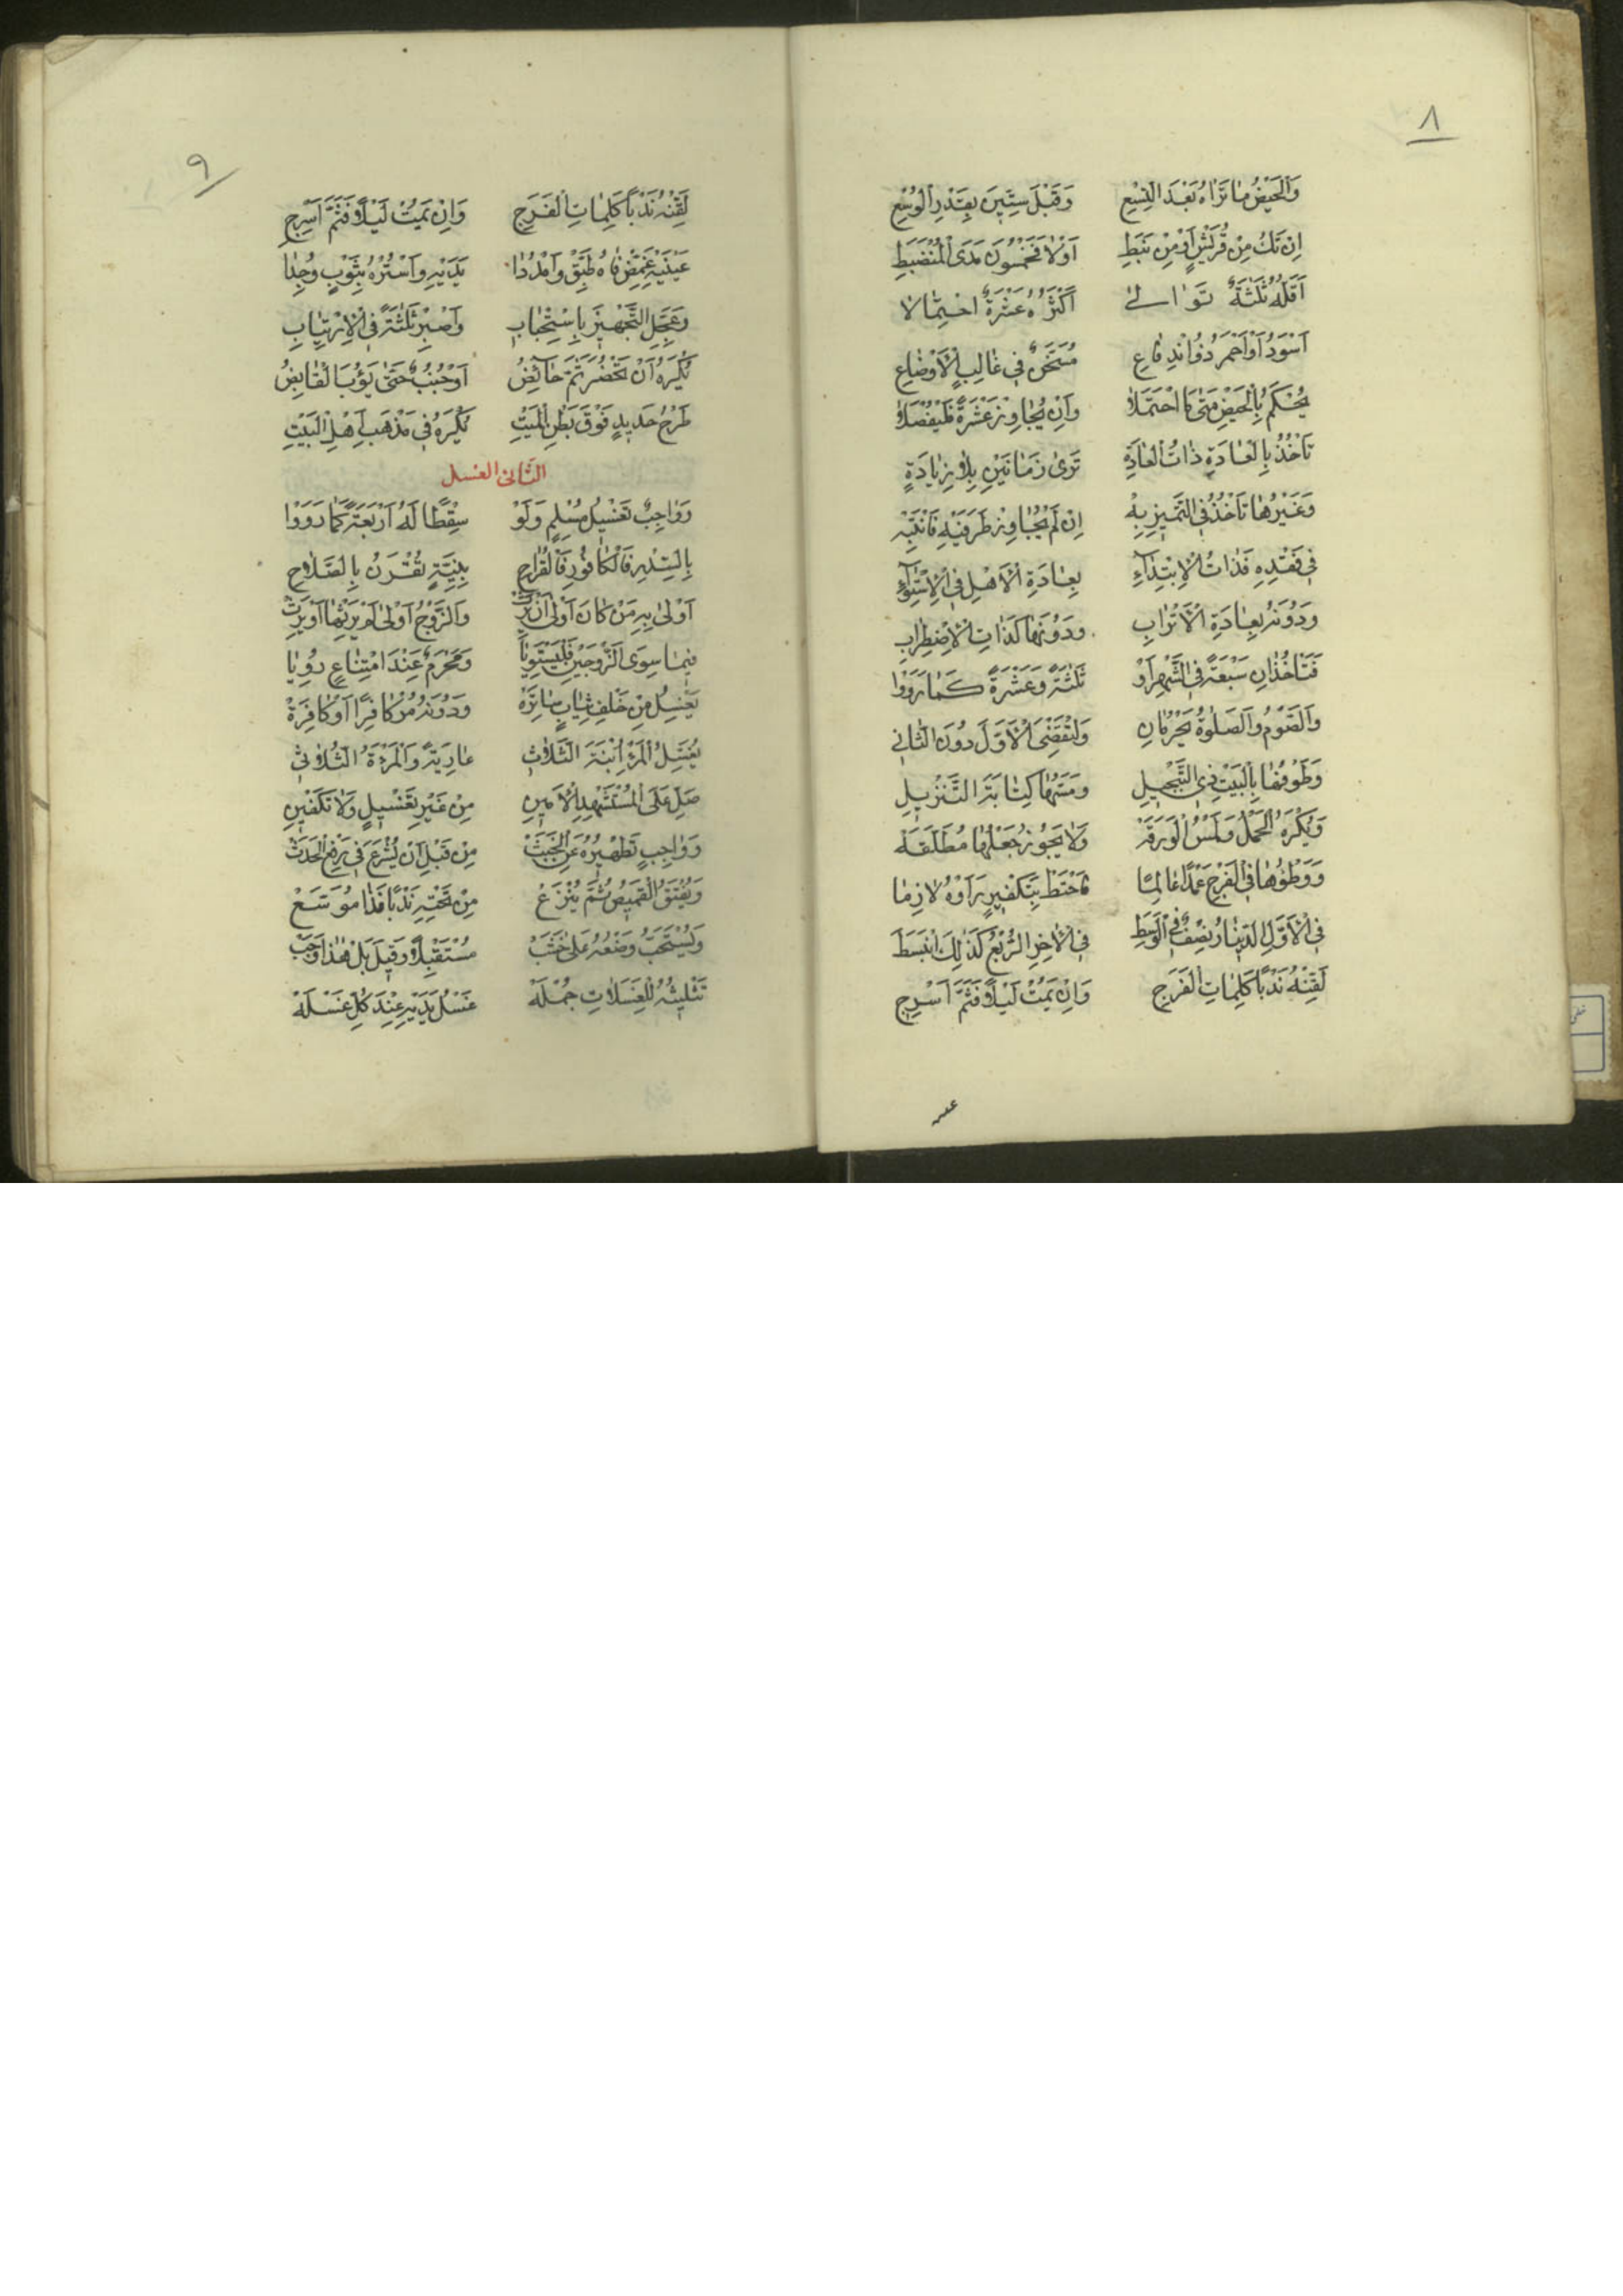 ٨
وَالْحَيْضُ مَا تَرَاهُ بَعْدَ التِّسْعِ وَقَبْلَ سِتِّينَ بِقَدْرِ الْوُسْعِ
اِنْ تَكُ مِنْ قُرَيْشٍ اَوْ مِنْ نَبَطِ اَوْلَا فَخَمْسُونَ مَدَى الْمُنْضَبِطِ
اَقَلُّهُ ثَلٰثَةٌ تَوَالٰى اَكْثَرُهُ عَشْرَةٌ احْتِمَالَا
اَسْوَدُ اَوْ اَحْمَرُ ذُو انْدِفَاعِ مُسَخَّنٌ فِي غَالِبِ الْاَوْضَاعِ
يُحْكَمُ بِالْحَيْضِ مَتٰى مَا احْتَمَلَا وَاِنْ يُجَاوِزْ عَشْرَةً فَلْيُفْصَلَا
تَاْخُذُ بِالْعَادَةِ ذَاتُ الْعَادَةِ تَرٰى زَمَانَيْنِ بِلَا زِيَادَةٍ
وَغَيْرُهَا تَاْخُذُ فِي التَّمْيِيزِ بِهْ اِنْ لَمْ يُجَاوِزْ طَرَفَيْهِ فَانْتَبِهْ
فِي فَقْدِهِ فَذَاتُ الْاِبْتِدَاءِ بِعَادَةِ الْاَهْلِ فِي الْاِسْتِوَاءِ
وَدُونَهُ بِعَادَةِ الْاَتْرَابِ وَدُونَهَا كَذَاتِ الْاِضْطِرَابِ
فَتَاْخُذَانِ سَبْعَةً فِي الشَّهْرِ اَوْ ثَلٰثَةً وَعَشْرَةً كَمَا رَوَوْا
وَالصَّوْمُ وَالصَّلٰوةُ يَحْرُمَانِ وَلْتَقْضِيَ الْاَوَّلَ دُونَ الثَّانِي
وَطَوْفُهَا بِالْبَيْتِ ذِي التَّبْجِيلِ وَمَسُّهَا كِتَابَةَ التَّنْزِيلِ
وَيُكْرَهُ الْحَمْلُ وَلَمْسُ الْوَرَقَةْ وَلَا يَجُوزُ جَعْلُهَا مُطَلَّقَةْ
وَوَطْؤُهَا فِي الْفَرْجِ عَمْدًا عَالِمًا فَاحْتَطْ بِتَكْفِيرٍ رَاَوْهُ لَازِمَا
فِي الْاَوَّلِ الدِّينَارُ نِصْفٌ فِي الْوَسَطِ فِي الْاٰخِرِ الرُّبْعُ كَذٰلِكَ انْبَسَطَ
لَقِّنْهُ نَدْبًا كَلِمَاتِ الْفَرَجِ وَاِنْ يَمُتْ لَيْلًا فَثَمَّ اَسْرِجِ
٩
لَقِّنْهُ نَدْبًا كَلِمَاتِ الْفَرَجِ وَاِنْ يَمُتْ لَيْلًا فَثَمَّ اَسْرِجِ
عَيْنَيْهِ غَمِّضْ فَاهُ طَبِّقْ وَامْدُدَا يَدَيْهِ وَاسْتُرْهُ بِثَوْبٍ وُجِدَا
وَعَجِّلِ التَّجْهِيزَ بِاسْتِحْبَابِ وَاصْبِرْ ثَلٰثَةً فِي الْاِرْتِيَابِ
يُكْرَهُ اَنْ تَحْضُرَ ثَمَّ حَائِضُ اَوْ جُنُبٌ حَتّٰى يَؤُبَ الْقَابِضُ
طَرْحُ حَدِيدٍ فَوْقَ بَطْنِ الْمَيْتِ يُكْرَهُ فِي مَذْهَبِ اَهْلِ الْبَيْتِ
الثانى الغسل
وَوَاجِبٌ تَغْسِيلُ مُسْلِمٍ وَلَوْ سِقْطًا لَهُ اَرْبَعَةٌ كَمَا رَوَوْا
بِالسِّدْرِ فَالْكَافُورِ فَالْقَرَاحِ بِنِيَّةٍ تُقْرَنُ بِالصَّلَاحِ
اَوْلٰى بِهِ مَنْ كَانَ اَوْلٰى اَنْ يَرِثْ وَالزَّوْجُ اَوْلٰى لَمْ يَرِثْهَا اَوْ يَرِثْ
فِيمَا سِوَى الزَّوْجَيْنِ فَلْيَسْتَوِيَا وَمَحْرَمٌ عِنْدَ امْتِنَاعٍ رُوِيَا
يَغْسِلُ مِنْ خَلْفِ ثِيَابٍ سَاتِرَةْ وَدُونَهُ مُرْ كَافِرًا اَوْ كَافِرَةْ
يُغَسِّلُ الْمَرْءُ ابْنَةَ الثَّلَاثِ عَارِيَةً وَالْمَرْءَةُ الثُّلَاثِي
صَلِّ عَلَى الْمُسْتَشْهَدِ الْاَمِينِ مِنْ غَيْرِ تَغْسِيلٍ وَلَا تَكْفِينِ
وَوَاجِبٌ تَطْهِيرُهُ عَنِ الْخَبَثْ مِنْ قَبْلِ اَنْ يُشْرَعَ فِي رَفْعِ الْحَدَثْ
وَيُفْتَقُ الْقَمِيصُ ثُمَّ يُنْزَعْ مِنْ تَحْتِهِ نَدْبًا فَذَا مُوَسَّعْ
وَيُسْتَحَبُّ وَضْعُهُ عَلٰى خَشَبْ مُسْتَقْبِلًا وَقِيلَ بَلْ هٰذَا وَجَبْ
تَثْلِيثُهُ لِلْغَسَلَاتِ جُمْلَهْ غَسْلُ يَدَيْهِ عِنْدَ كُلِّ غَسْلَهْ